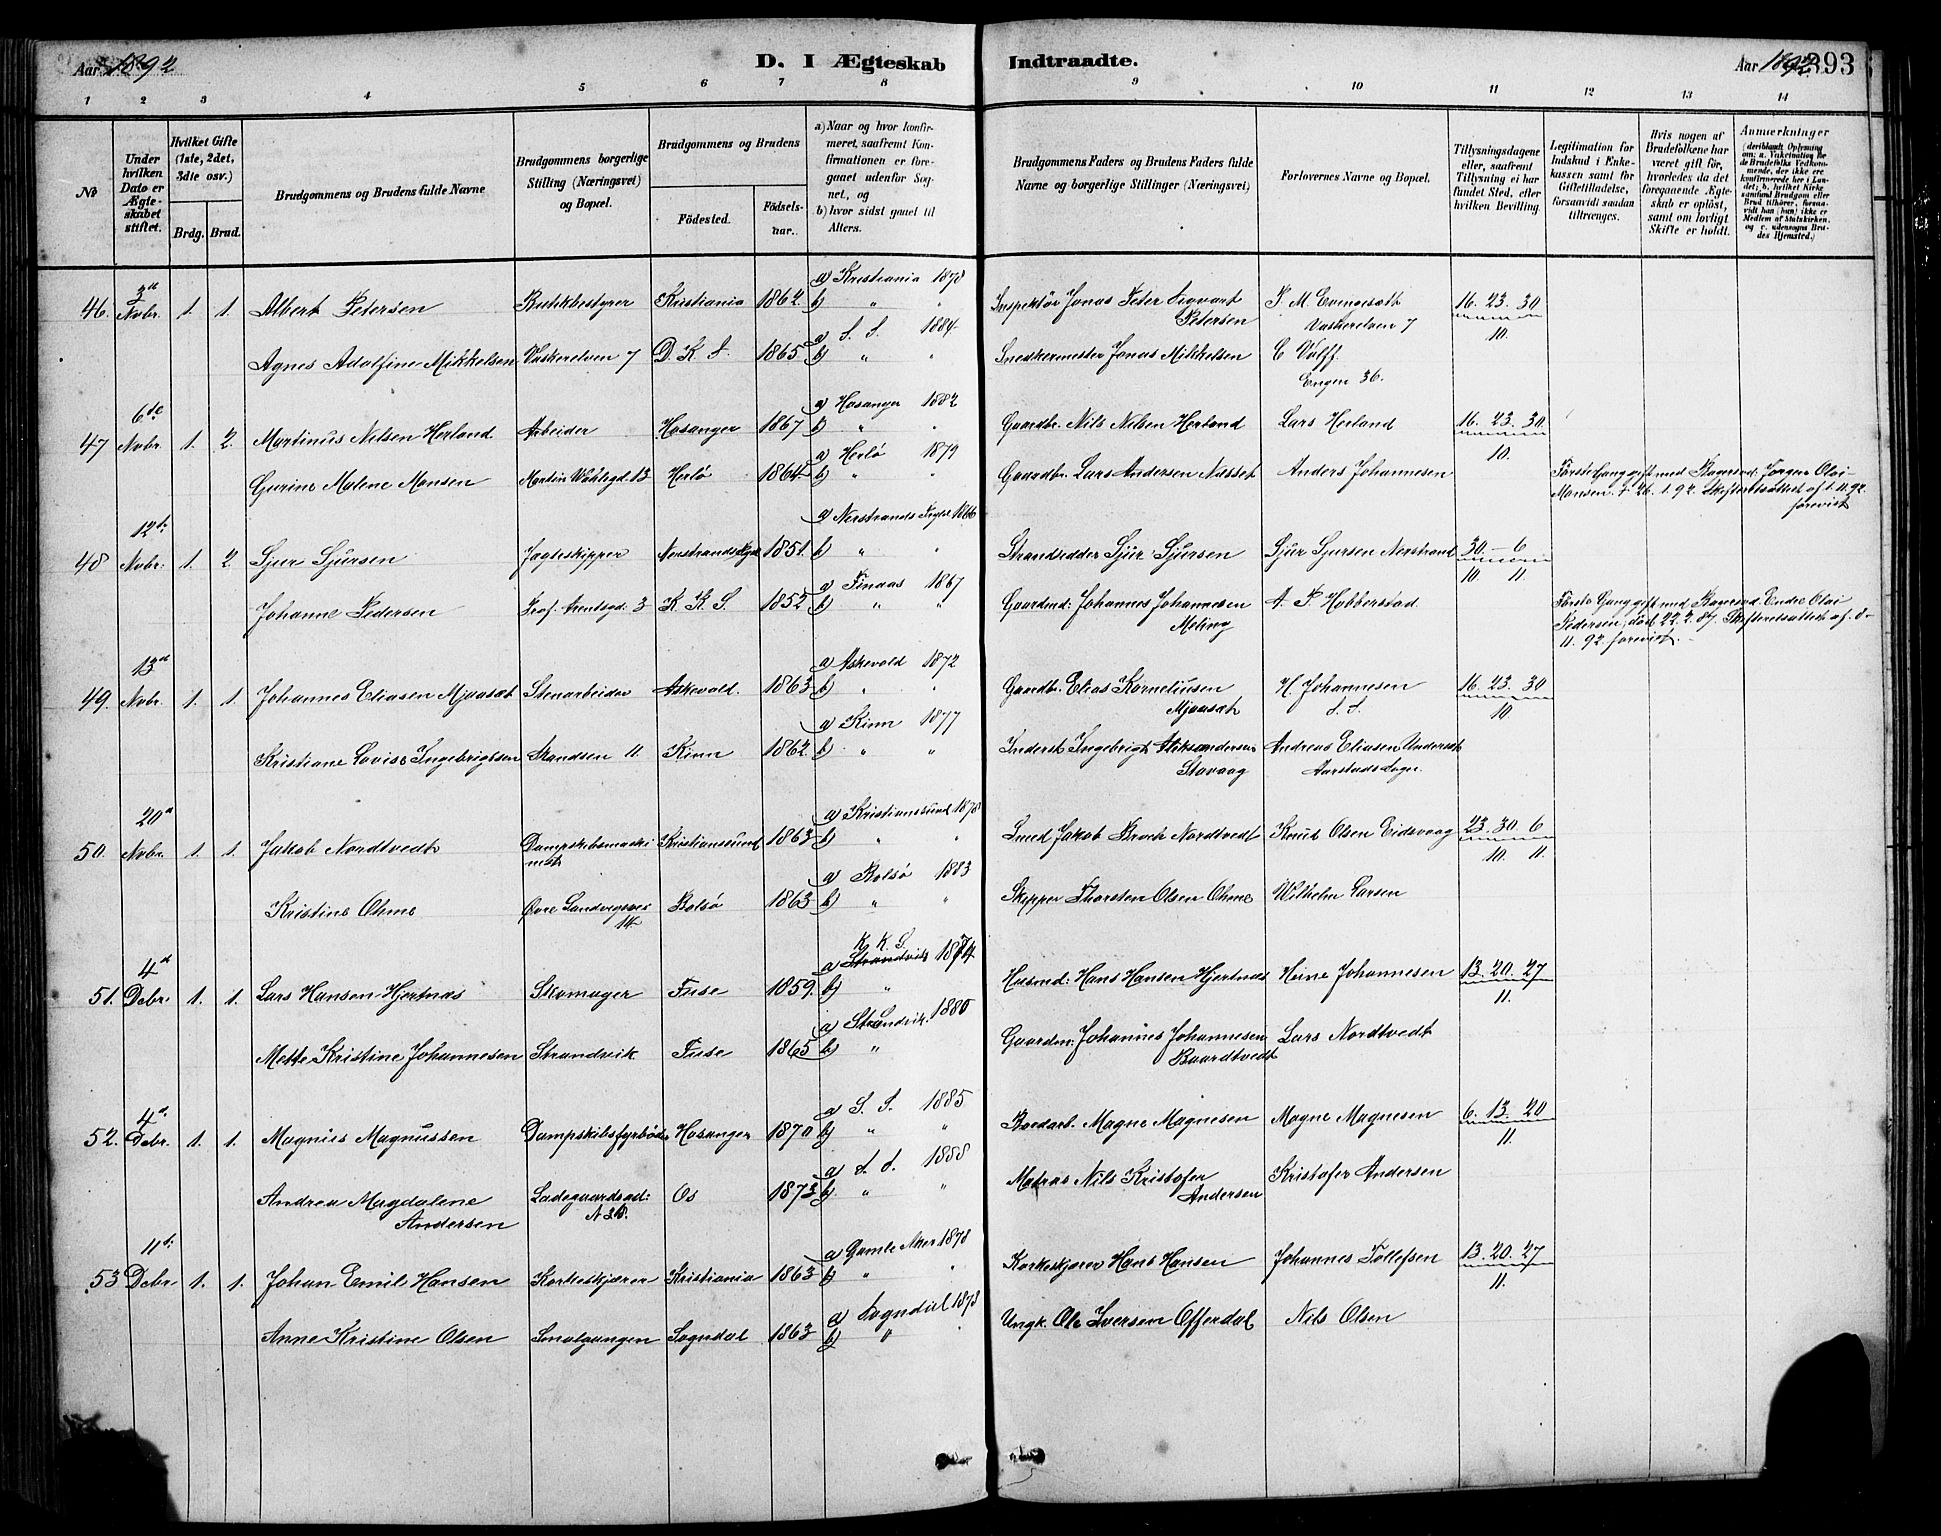 Aar 1892
D. I Ægteskab Indtraadte.
Aar 1892 393
1 2 3 4 5 6 7 8 9 10 11 12 13 14
No
Under hvilken Dato er Ægteskabet stiftet.
Hvilket Gifte (1ste, 2det, 3die osv.)
Brdg. Brud.
Brudgommens og Brudens fulde Navne
Brudgommens borgerlige Stilling (Næringsvei) og Bopæl.
Brudgommens og Brudens
Födested. Födselsaar.
a) Naar og hvor konfirmeret, saafremt Konfirmationen er foregaaet udenfor Sognet, og
b) hvor sidst gaaet til Alters.
Brudgommens Faders og Brudens Faders fulde Navne og borgerlige Stillinger (Næringsvei)
Forlovernes Navne og Bopæl.
Tillysningsdagene eller, saafremt Tillysning ei har fundet Sted, efter hvilken Bevilling.
Legitimation for Indskud i Enkekassen samt for Giftetilladelse, forsaavidt saadan tiltrænges.
Hvis nogen af Brudefolkene har været gift för, hvorledes da det foregaaende Ægteskab er oplöst, samt om lovligt Skifte er holdt.
Anmærkninger (deriblandt Oplysning om: a. Vakcination for de Brudefolks Vedkommende, der ikke ere konfirmerede her i Landet; b. hvilket Kirkesamfund Brudgom eller Brud tilhörer, forsaavidt han (hun) ikke er Medlem af Statskirken, og c. udensogns Brudes Hjemsted.)
46. 3d Novbr. 1. 1. Albert Petersen Butikbestyrer Kristiania 1862 a) Kristiania 1878 b) " " Inspektör Jonas Peter Sigvart Petersen P. M. Evengesæt Vaskerelven 7 16. 23. 30 10.
Agnes Adolfine Mikkelsen Vaskerelven 7 D. K S. 1865 a) S. S. 1884 b) " " Snedkermester Jonas Mikkelsen C Wolff Engen 36.
47 6de Novbr. 1. 2. Martinus Nilsen Herland Arbeider Hosanger 1867 a) Hosanger 1882 b) " " Gaardbr. Nils Nilsen Herland Lars Herland 16. 23. 30. 10.
Gurine Malene Monsen Martin Wahlsgd. 13 Herlö 1864 a) Herlö 1879 b) " " Gaardbr. Lars Andersen Nesset Anders Johannesen Förste Gang gift med Bagersvd. Jörgen Olai Monsen. † 26. 1. 92. Skifteretsattest af 1. 11. 92. forevist
48 12te Novbr. 1. 2 Sjur Sjursen Jagteskipper Nerstrands Prgld 1851. a) Nerstrands Prgld 1866 b) " " Strandsidder Sjur Sjursen Sjur Sjursen Nerstrand 30 – 6 10. 11.
Johanne Pedersen Prof. Arentsgd: 3 K K. S. 1852 a) Finaas 1867 b) " " Gaardmd: Johannes Johannesen Meling A. P Hobberstad Förste Gang gift med Bagersvd. Endre Olai Pedersen, död 22. 2. 87. Skifteretsattest af 8. 11. 92 forevist.
49. 13d Novbr. 1. 1. Johannes Eliasen Mjaaset Stenarbeider Askevold. 1863 a) Askevold 1872 b) " " Gaardbr. Elias Korneliusen Mjaaset H. Johannesen S. S. 16. 23. 30 10.
Kristiane Lovise Ingebrigtsen Strandsen 11 Kinn 1862 a) Kinn 1877 b) " " Inderst Ingebrigt Aleksandersen Stavaag Andreas Eliasen Aarstads Sogn.
50. 20d Novbr. 1. 1. Jakob Nordtvedt Dampskibsmaskinist Kristianssund 1863 a) Kristianssund 1878 b) " " Smed Jakob Broch Nordtvedt Knud Olsen Eidsvaag 23. 30. 6 10. 11.
Kristine Ohme Övre Sandvigsvei 14 Bolsö 1863 a) Bolsö 1883 b) " " Skipper Thorsten Olsen Ohme Wilhelm Larsen
51. 4d Debr. 1. 1. Lars Hansen Hjertnæs Skomager Fuse 1859. a) K. K. S. Strandvik 1874 b) " Husmd: Hans Hansen Hjertnæs Heine Johannesen 13. 20. 27 11.
Mette Kristine Johannesen Strandvik Fuse 1865 a) Strandvik. 1880 b) " Gaardm: Johannes Johannesen Baardtvedt Lars Nordtvedt
52. 4d. Debr. 1. 1. Magnus Magnussen Dampskibsfyrböder Hosanger 1870 a) S. S. 1885 b) " " Bordarb. Magne Magnesen Magne Magnesen 6. 13. 20 11.
Andrea Magdalene Andersen Ladegaardsgd: Os 1873 a) S. S. 1888 b) " " Matros Nils Kristofer Andersen Kristofer Andersen
53 11te Debr 1. 1. Johan Emil Hansen Korkeskjærer Kristiania 1863 a) Gamle Aker 1878 b) " " Korkeskjærer Hans Hansen Johannes Tollefsen 13. 20. 27 11.
Anne Kristine Olsen Smalgangen Sogndal 1863 a) Sogndal 1878 b) " Ungk. Ole Iversen Offerdal Nils Olsen